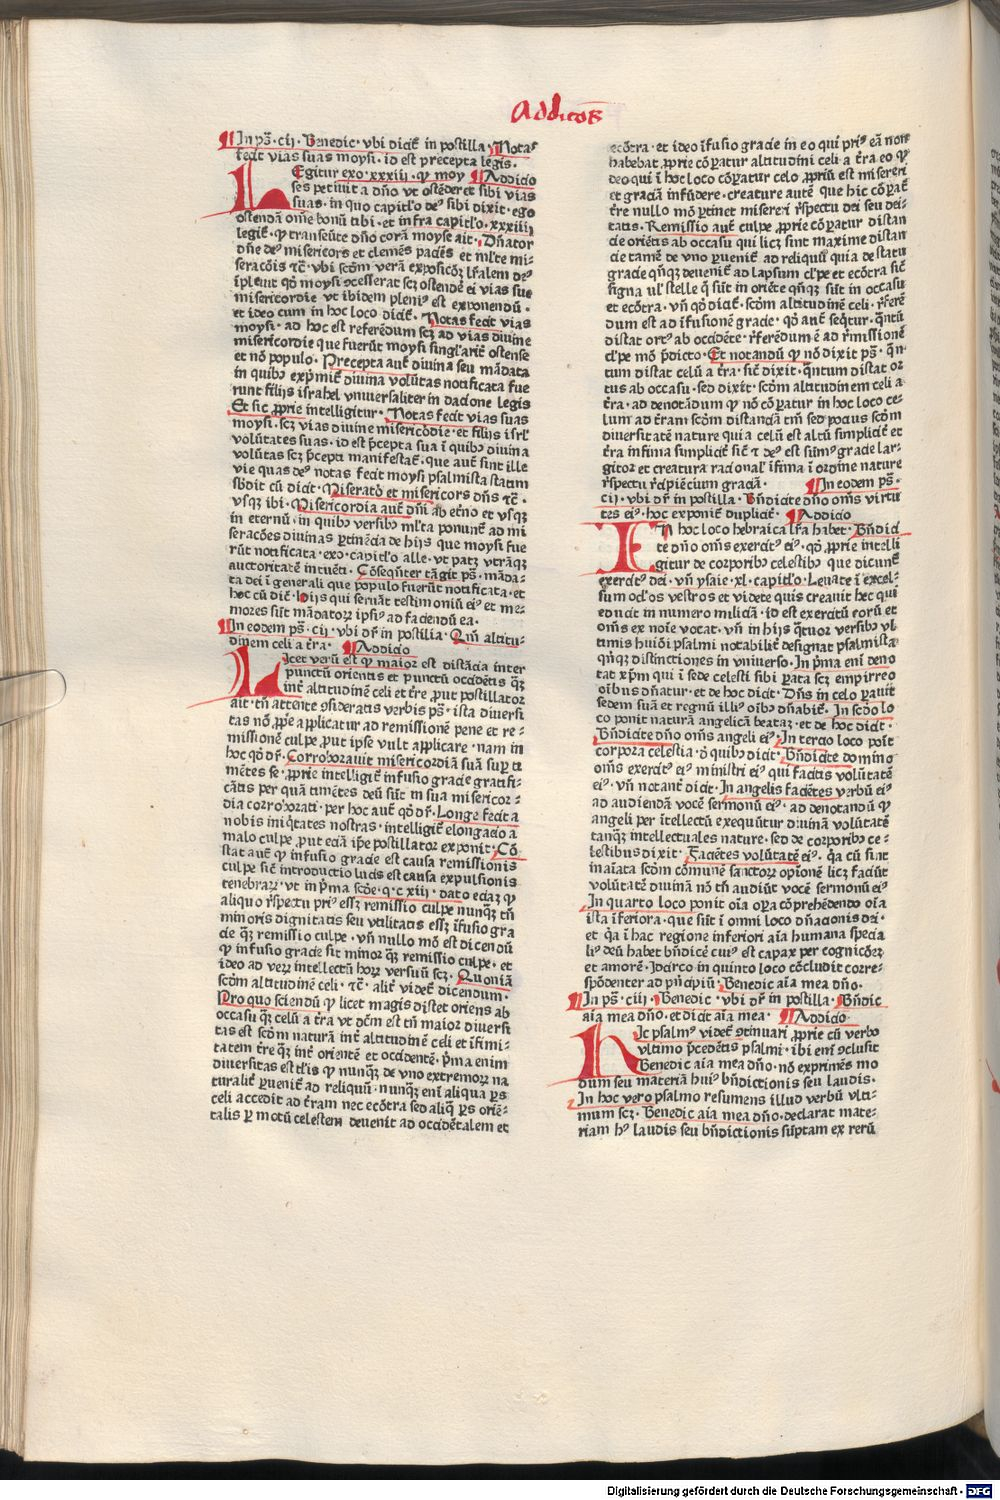 Addicōes
¶In ps̄·cij·Benedic·vbi dicit̄ in postilla ¶Notas
fecit vias suas moysi·id est precepta legis.
LEgitur exo·xxxiij·ꝙ moy ¶Addicio
ses petiuit a dño vt ostēderet sibi vias
suas·in quo capit̄lo de⁹ sibi dixit·ego
ostendā om̄e bonū tibi·et infra capit̄lo·xxxiiij
legit̄·ꝙ transeūte dño corā moyse ait·Dñator
dñe de⁹ misericors et clemēs paciēs et ml̄te mi⸗
seracōis ⁊c̄·vbi scd̄m verā exposicōꝫ lr̄alem de⁹
īpleuit qd̄ moysi ꝯcesserat scꝫ ostendē ei vias sue
misericordie vt ibidem pleni⁹ est exponendū·
et ideo cum in hoc loco dicit̄·Notas fecit vias
moysi·ad hoc est referēdum scꝫ ad vias diuine
misericordie que fuerūt moysi singl̄arit̄ ostense
et nō populo·Precepta aut̄ diuina seu mādata
in quibꝰ exp̄mit̄ diuina volūtas notificata fue
runt filijs israhel vniuersaliter in dacione legis
Et sic ꝓprie intelligitur·Notas fecit vias suas
moysi·scꝫ vias diuine misericordie·et filijs isrl̄
volūtates suas·id est p̄cepta sua ī quibꝰ diuina
volūtas scꝫ p̄cepti manifestat̄·que aut̄ sint ille
vie quas de⁹ notas fecit moysi psalmista statim
sb̄dit cū dicit·Miserator et misericors dñs ⁊c̄·
vsqꝫ ibi·Misericordia aut̄ dñi ab et̄no et vsqꝫ
in eternū·in quibꝰ versibꝰ ml̄ta ponunt̄ ad mi
seracōes diuinas ꝑtinēcia de hijs que moysi fue
rūt notificata·exo·capit̄lo alle·vt patꝫ vtrāqꝫ
auctoritatē intuēti·Cōseqn̄ter tāgit ps̄·māda⸗
ta dei ī generali que populo fuerūt notificata·et
hoc cū dic̄·Hijs qui seruāt testimoniū ei⁹ et me⸗
mores sūt mādatorꝝ ipsi⁹ ad faciendū ea·
¶In eodem ps̄·cij·vbi dr̄ in postilla·Qm̄ altitu⸗
dinem celi a t̄ra· ¶Addicio
LIcet verū est ꝙ maior est distācia inter
punctū orientis et punctū occidētis qꝫ
int̄ altitudinē celi et t̄re ꝓut postillator
ait·tn̄ attente ꝯsideratis verbis ps̄·ista diuersi
tas nō ꝓpe applicatur ad remissionē pene et re⸗
missionē culpe ꝓut ipse vult applicare·nam in
hoc qd̄ dr̄·Corroborauit misericordiā suā suꝑ ti
mētes se·ꝓprie intelligit̄ infusio gracie gratifi⸗
cātis per quā timētes deū sūt in sua misericor⸗
dia corroborati·per hoc aut̄ qd̄ dr̄·Longe fecit a
nobis iniq̄tates nostras·intelligit̄ elongacio a
malo culpe ꝓut eciā ip̄e postillator exponit·Cō
stat aut̄ ꝙ infusio gracie est causa remissionis
culpe sic̄ introductio lucis est causa expulsionis
tenebraꝝ·vt in p̄ma scd̄e·q·cxiij·dato eciaꝫ ꝙ
aliquo r̄spectu pri⁹ esset remissio culpe nunqꝫ tn̄
minoris dignitatis seu vtilitatis esset īfusio gra
cie qꝫ remissio culpe·vn̄ nullo mō est dicendū
ꝙ infusio gracie sit minor qꝫ remissio culpe·et
ideo ad verꝫ intellectū horꝫ versuū scꝫ·Quoniā
scd̄m altitudinē celi·⁊c̄·alit̄ videt̄ dicendum·
Pro quo sciendū ꝙ licet magis distet oriens ab
occasu qꝫ celū a t̄ra vt dcm̄ est tn̄ maior diuersi
tas est scd̄m naturā int̄ altitudinē celi et īfimi⸗
tatem t̄re qꝫ int̄ orientē et occidentē·p̄ma enim
diuersitas est tl̄is ꝙ nunqꝫ de vno extremoꝝ na
turalit̄ ꝑuenit̄ ad reliquū·nunqꝫ eni aliqua ꝑs
celi accedit ad t̄ram nec ecōtra sed aliq̄ ꝑs oriē⸗
talis ꝑ motū celestem deuenit ad occidētalem et
ecōtra·et ideo īfusio gracie in eo qui pri⁹ eā non
habebat ꝓprie cōꝑatur altitudini celi a t̄ra eo ꝙ
deo qui ī hoc loco cōꝑatur celo ꝓpriū est misereri
et graciā infūdere·creature autē que hic cōꝑat̄
t̄re nullo mō ꝑtinet misereri r̄spectu dei seu dei⸗
tatis·Remissio aut̄ culpe ꝓprie cōꝑatur distan
cie oriētis ab occasu qui licꝫ sint maxime distan
cie tamē de vno ꝑuenit̄ ad reliquū quia de statu
gracie qn̄qꝫ deuenit̄ ad lapsum cl̄pe et ecōtra sic̄
signa ul̓ stelle q̄ sūt in oriēte qn̄qꝫ sūt in occasu
et ecōtra·vn̄ qd̄ dicit̄·scd̄m altitudinē celi·r̄ferē
dum est ad īfusionē gracie·qd̄ aut̄ seq̄tur·q̄ntū
distat ort⁹ ab occidēte·r̄ferēdum ē ad r̄missionē
cl̄pe mō p̄dicto·Et notandū ꝙ nō dixit ps̄·q̄n
tum distat celū a t̄ra·sic̄ dixit·q̄ntum distat or
tus ab occasu·sed dixit·scd̄m altitudinem celi a
t̄ra·ad denotādum ꝙ nō cōꝑatur in hoc loco ce⸗
lum ad t̄ram scd̄m distanciā tm̄ sed pocius scd̄m
diuersitatē nature quia celū est altū simplicit̄ et
t̄ra infima simplicit̄ sic̄ ⁊ de⁹ est sūm⁹ gracie lar⸗
gitor et creatura racional̓ īfima ī ordine nature
r̄spectu r̄cipiēcium graciā· ¶In eodem ps̄·
cij·vbi dr̄ in postilla·Bn̄dicite dño om̄s virtu
tes ei⁹·hoc exponit̄ duplicit̄· ¶Addicio
IN hoc loco hebraica lr̄a habet·Bn̄dici
te dño om̄s exercit⁹ ei⁹·qd̄ ꝓprie intelli
gitur de corporibꝰ celestibꝰ que dicunt̄
exercit⁹ dei·vn̄ ysaie·xl·capit̄lo·Leuate ī excel⸗
sum ocl̓os vestros et videte quis creauit hec qui
educit in numero miliciā·id est exercitū eorū et
om̄s ex noīe vocat·vn̄ in hijs q̄tuor versibꝰ vl
timis hui⁹di psalmi notabilit̄ designat psalmista
qn̄qꝫ distinctiones in vniuerso·In p̄ma eni deno
tat xp̄m qui ī sede celesti sibi ꝑata scꝫ empirreo
oībus dn̄atur·et de hoc dicit·Dñs in celo ꝑauit
sedem suā et regnū illi⁹ oībꝰ dn̄abit̄·In scd̄o lo
co ponit naturā angelicā beataꝫ·et de hoc dicit·
Bn̄dicite dño om̄s angeli ei⁹·In tercio loco poīt
corpora celestia·d̄ quibꝰ dicit·Bn̄dicite domino
om̄s exercit⁹ ei⁹ ministri ei⁹ qui facitis volūtatē
ei⁹·vn̄ notant̄ dicit·In angelis faciētes verbū ei⁹
ad audiendā vocē sermonū ei⁹·ad denotandū ꝙ
angeli per ītellectū exequūtur diuinā volūtatē
tanqꝫ intellectuales nature·sed de corporibꝰ ce⸗
lestibus dixit·Faciētes volūtatē ei⁹·q̄a cū sint
inaīata scd̄m cōmunē sanctoꝝ opīonē licꝫ faciūt
volūtatē diuinā nō tn̄ audiūt vocē sermonū ei⁹
In quarto loco ponit oīa oꝑa cōprehēdendo oīa
ista īferiora·que sūt ī omni loco dn̄acionis dei·
et q̄a ī hac regione inferiori aīa humana specia
li⁹ deū habet bn̄dicē cui⁹ est capax per cognicōeꝫ
et amorē·Idcirco in quinto loco cōcludit corre⸗
spōdenter ad p̄ncipiū·Benedic aīa mea dño·
¶In ps̄·ciij·Benedic·vbi dr̄ in postilla·Bn̄dic
aīa mea dño·et dicit aīa mea· ¶Addicio·
HIc psalm⁹ videt̄ ꝯtinuari ꝓprie cū verbo
vltimo p̄cedētis psalmi·ibi eni ꝯclusit
Benedic aīa mea dño·nō exprimēs mo
dum seu materiā hui⁹ bn̄dictionis seu laudis·
In hoc vero psalmo resumens illud verbū vlti⸗
mum scꝫ·Benedic aīa mea dño·declarat mate⸗
riam h⁹ laudis seu bn̄dictionis sūptam ex rerū
Digitalisierung gefördert durch die Deutsche Forschungsgemeinschaft - DFG